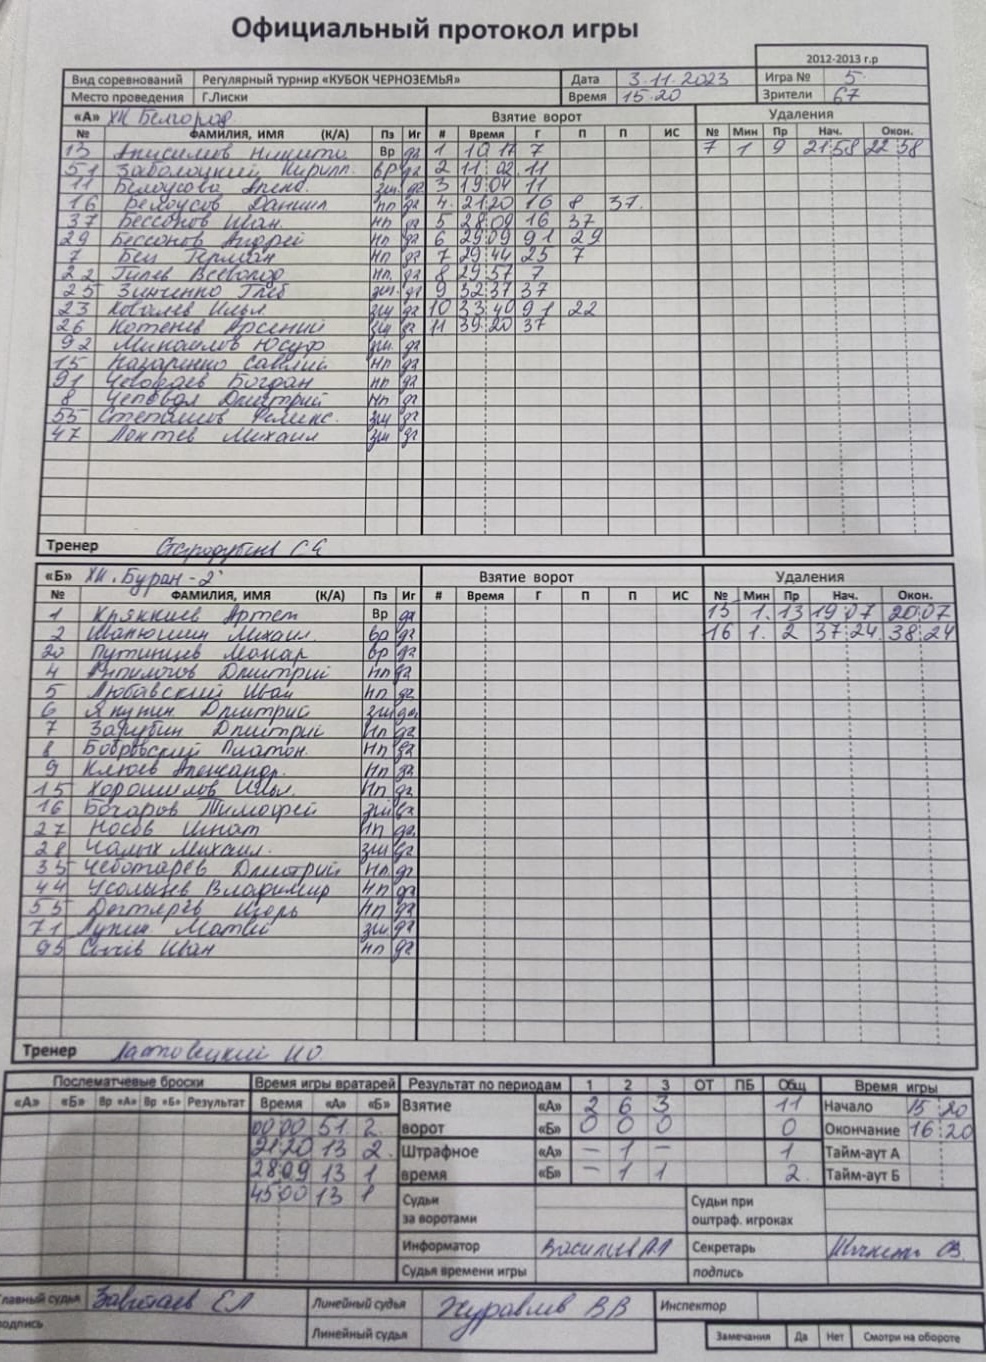 Официальный протокол игры
2012-2013 г.р
Вид соревнований Регулярный турнир «КУБОК ЧЕРНОЗЕМЬЯ» Дата 3.11.2023 Игра № 5
Место проведения Г.Лиски Время 15:20 Зрители 67
«А» ХК Белгород Взятие ворот Удаления
№ ФАМИЛИЯ, ИМЯ (К/А) Пз Иг # Время Г П П ИС № Мин Пр Нач. Окон.
13 Анисимов Никита Вр да 1 10 17 7 7 1 9 21:58 22 58
51 Заболоцкий Кирилл. вр да 2 11 02 11
11 Белоусова да 3 19:04 11
16 Белоусов Даниил нп да 4. 21:20 16 8 37.
37 Бессонов Иван. нп да 5 28:09 16 37
29 Бессонов Андрей нп да 6 29:09 91 29
7 Бец Герман нп да 7 29:44 25 7
22 Гилев Всеволод нп да 8 29:57 7
25 Зинченко Глеб зщ да 9 32:37 37
23 Ковалев Илья зщ да 10 33:40 91 22
26 Котенев Арсений зщ да 11 39:20 37
92 Михайлов Юсуф зщ да
15 Назаренко Савелий нп да
91 Богдан нп да
8 Чеповой Дмитрий нп да
55 Феликс. зщ да
47 Локтев Михаил зщ да
Тренер
«Б» ХК. Буран-2 Взятие ворот Удаления
№ ФАМИЛИЯ, ИМЯ (К/А) Пз Иг # Время Г П П ИС № Мин Пр Нач. Окон.
1 Артем Вр да 15 1. 13 19:07 20:07
2 Михаил. вр да 16 1. 2 37:24 38:24
20 Путинцев Макар вр да
4 Дмитрий нп да
5 Любавский Иван нп да
6 Якунин Дмитрий зщ да
7 Зарубин Дмитрий нп да
8 Бобровский Платон. нп да
9 Клюев Александр. нп да
15 Хорошилов Илья. нп да
16 Бочаров Тимофей зщ да
27 Носов Игнат нп да
28 Чалых Михаил. зщ да
35 Чеботарёв Дмитрий нп да
44 Усольцев Владимир нп да
55 Дегтярёв Игорь нп да
71 Лукин Матвей зщ да
95 Иван нп да
Тренер
Послематчевые броски Время игры вратарей Результат по периодам 1 2 3 ОТ ПБ Общ Время игры
«А» «Б» Вр «А» Вр «Б» Результат Время «А» «Б» Взятие ворот «А» 2 6 3 11 Начало 15 20
00:00 51 2. «Б» 0 0 0 0 Окончание 16:20
21:20 13 2. Штрафное время «А» – 1 – 1 Тайм-аут А
28:09 13 1 «Б» – 1 1 2. Тайм-аут Б
45:00 13 1 Судьи за воротами Судьи при оштраф. игроках
Информатор Секретарь
Судья времени игры подпись
Главный судья Линейный судья Журавлев В В Инспектор
подпись Линейный судья Замечания Да Нет Смотри на обороте